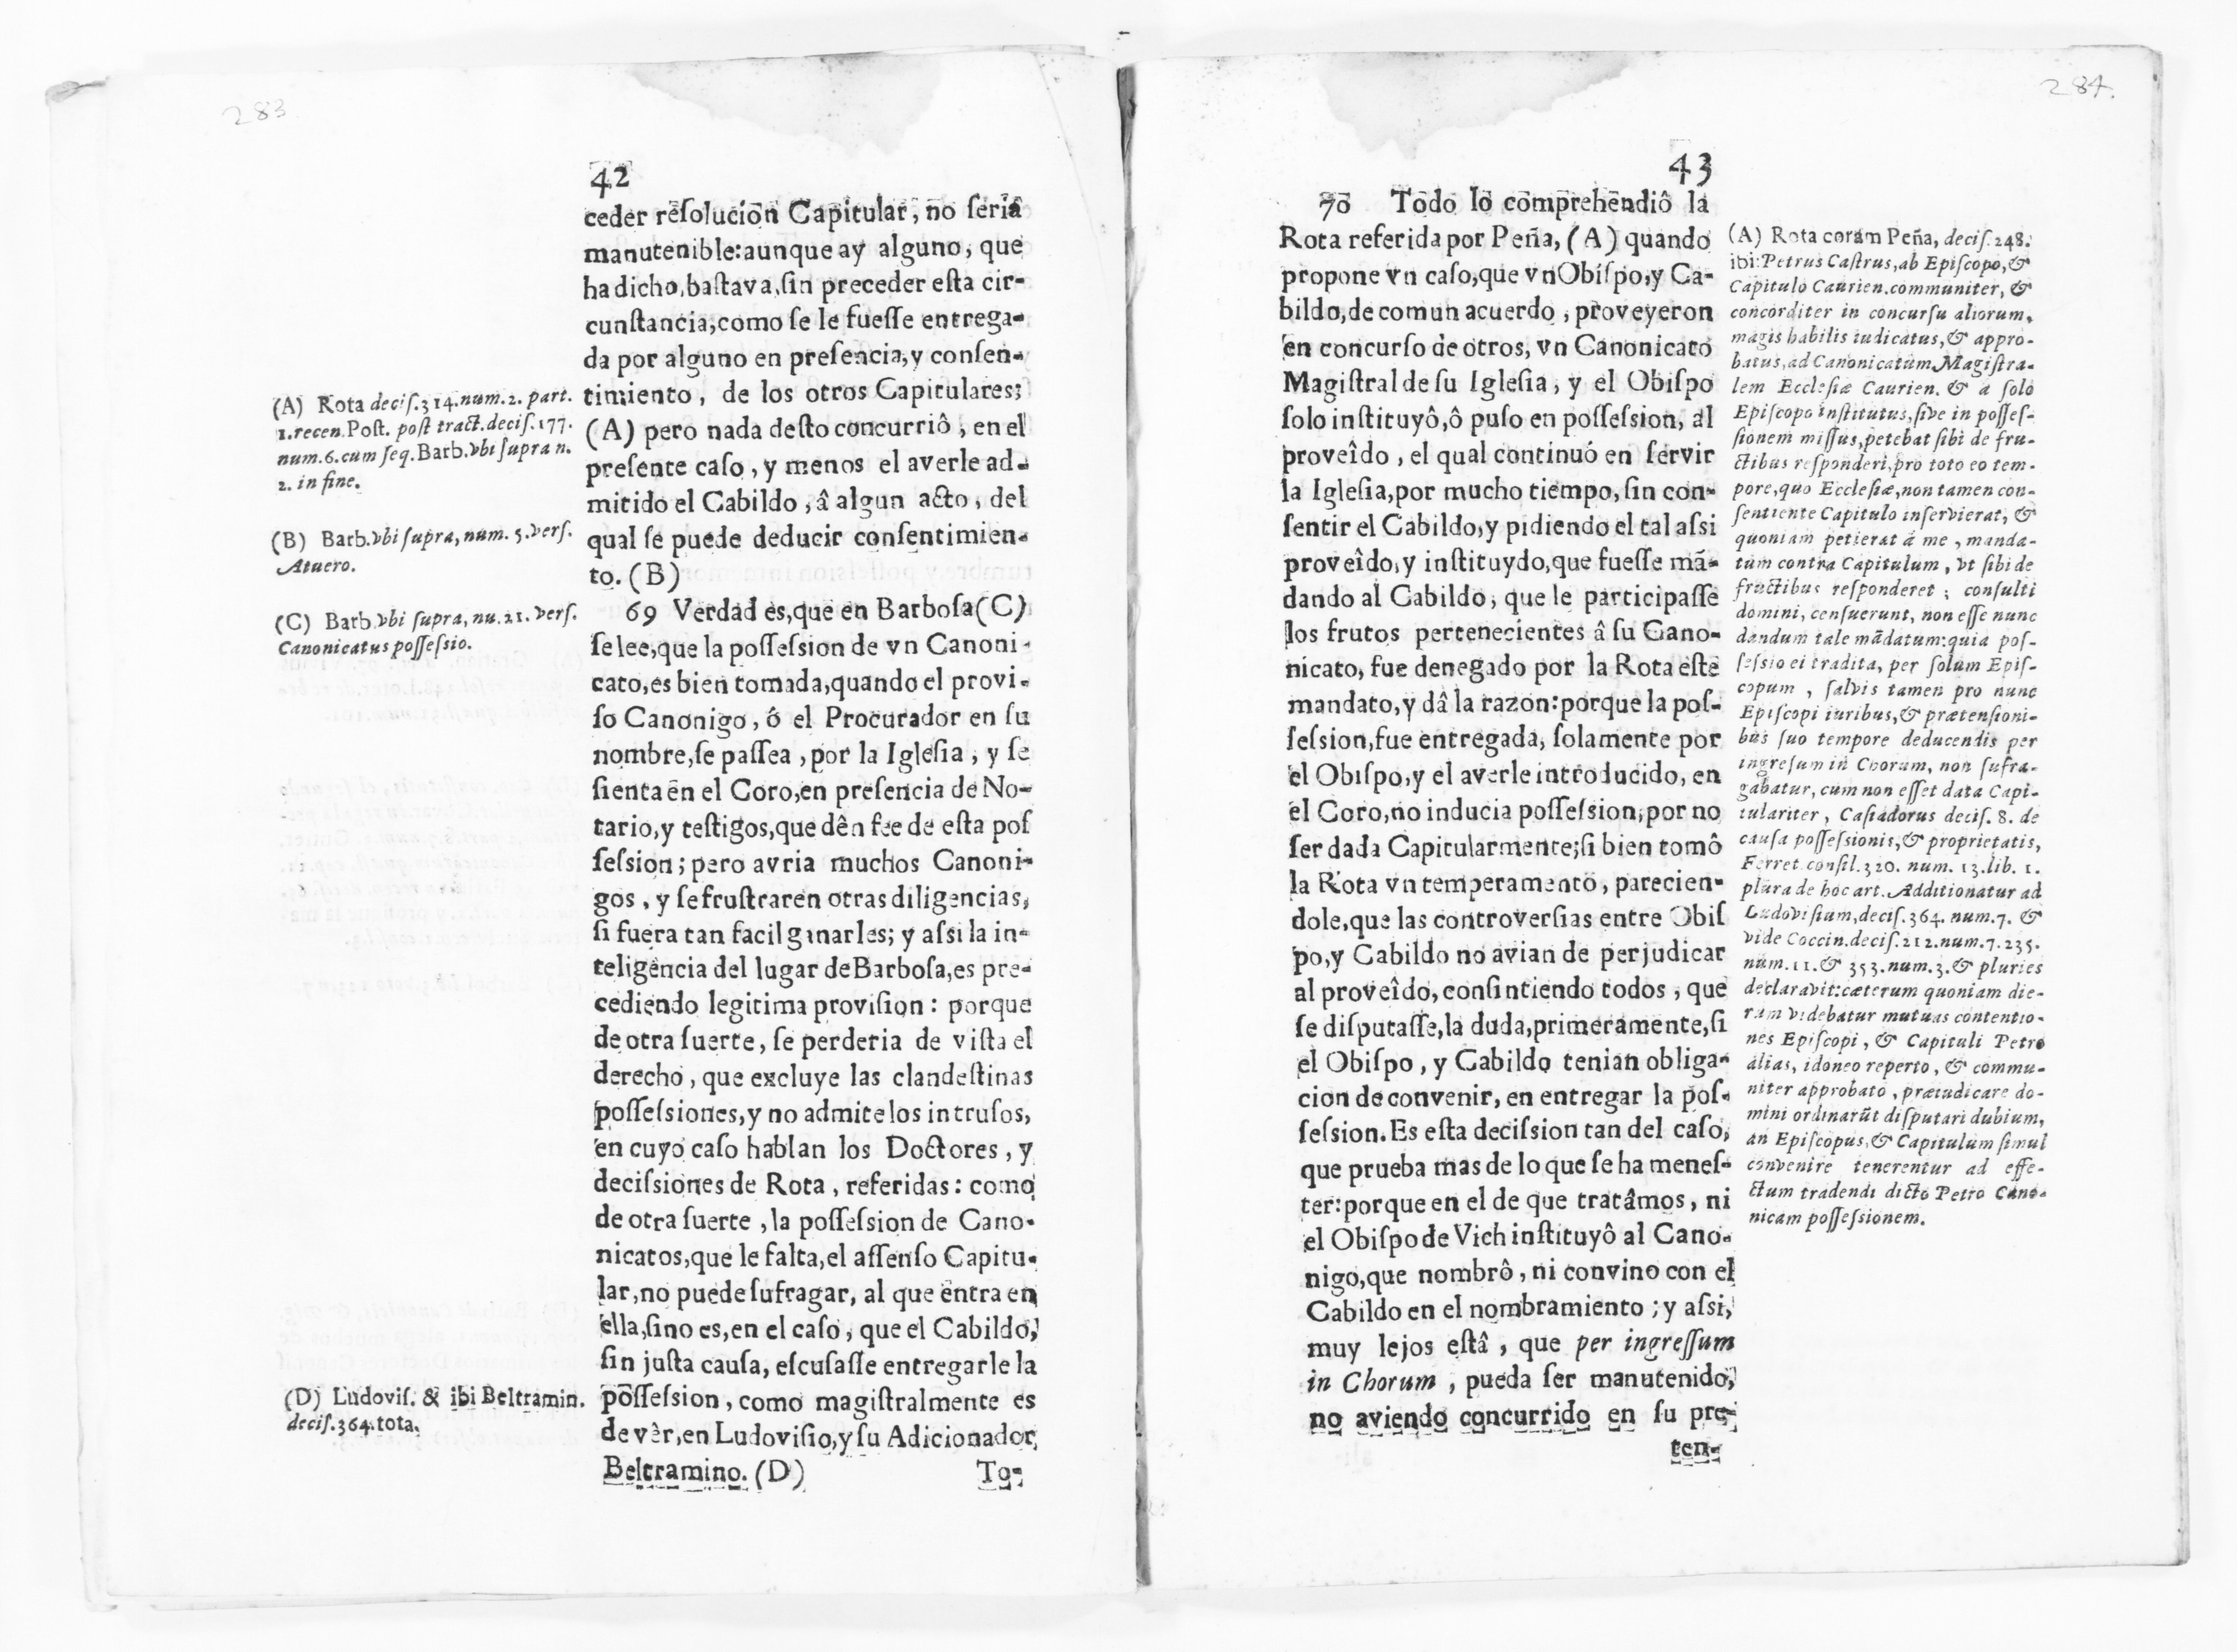 283
42
ceder resolucion Capitular, no seria
manutenible: aunque ay alguno, que
ha dicho, bastava, sin preceder esta cir-
cunstancia, como se le fuesse entrega-
da por alguno en presencia, y consen-
timiento, de los otros Capitulares;
(A) pero nada desto concurriô, en el
presente caso, y menos el averle ad-
mitido el Cabildo, â algun acto, del
qual se puede deducir consentimien-
to. (B)
69 Verdad es, que en Barbosa (C)
se lee, que la possession de vn Canoni-
cato, es bien tomada, quando el provi-
so Canonigo, ó el Procurador en su
nombre, se passea, por la Iglesia, y se
sienta en el Coro, en presencia de No-
tario, y testigos, que dên fee de esta pos
session; pero avria muchos Canoni-
gos, y se frustraren otras diligencias,
si fuera tan facil ganarles; y assi la in-
teligencia del lugar de Barbosa, es pre-
cediendo legitima provision: porque
de otra suerte, se perderia de vista el
derecho, que excluye las clandestinas
possessiones, y no admite los intrusos,
en cuyo caso hablan los Doctores, y
decissiones de Rota, referidas: como
de otra suerte, la possession de Cano-
nicatos, que le falta, el assenso Capitu-
lar, no puede sufragar, al que entra en
ella, sino es, en el caso, que el Cabildo,
sin justa causa, escusasse entregarle la
possession, como magistralmente es
de vèr, en Ludovisio, y su Adicionador,
Beltramino. (D)
To-
(A) Rota decis. 314. num. 2. part.
1. recen. Post. post tract. decis. 177.
num. 6. cum seq. Barb. vbi supra n.
2. in fine.
(B) Barb. vbi supra, num. 5. vers.
Atuero.
(C) Barb. vbi supra, nu. 21. vers.
Canonicatus possessio.
(D) Ludovis. & ibi Beltramin.
decis. 364. tota.
284.
43
70 Todo lo comprehendiô la
Rota referida por Peña, (A) quando
propone vn caso, que vn Obispo, y Ca-
bildo, de comun acuerdo, proveyeron
en concurso de otros, vn Canonicato
Magistral de su Iglesia, y el Obispo
solo instituyô, ô puso en possession, al
proveîdo, el qual continuó en servir
la Iglesia, por mucho tiempo, sin con-
sentir el Cabildo, y pidiendo el tal assi
proveîdo, y instituydo, que fuesse mã-
dando al Cabildo, que le participasse
los frutos pertenecientes â su Cano-
nicato, fue denegado por la Rota este
mandato, y dâ la razon: porque la pos-
session, fue entregada, solamente por
el Obispo, y el averle introducido, en
el Coro, no inducia possession, por no
ser dada Capitularmente; si bien tomô
la Rota vn temperamento, parecien-
dole, que las controversias entre Obis
po, y Cabildo no avian de perjudicar
al proveîdo, consintiendo todos, que
se disputasse, la duda, primeramente, si
el Obispo, y Cabildo tenian obliga-
cion de convenir, en entregar la pos-
session. Es esta decission tan del caso,
que prueba mas de lo que se ha menes-
ter: porque en el de que tratâmos, ni
el Obispo de Vich instituyô al Cano-
nigo, que nombrô, ni convino con el
Cabildo en el nombramiento; y assi,
muy lejos estâ, que per ingressum
in Chorum, pueda ser manutenido,
no aviendo concurrido en su pre-
ten-
(A) Rota coram Peña, decis. 248.
ibi: Petrus Castrus, ab Episcopo, &
Capitulo Caurien. communiter, &
concorditer in concursu aliorum,
magis habilis iudicatus, & appro-
batus, ad Canonicatum Magistra-
lem Ecclesiæ Caurien. & a solo
Episcopo institutus, sive in posses-
sionem missus, petebat sibi de fru-
ctibus responderi, pro toto eo tem-
pore, quo Ecclesiæ, non tamen con-
sentiente Capitulo inservierat, &
quoniam petierat á me, manda-
tum contra Capitulum, vt sibi de
fructibus responderet; consulti
domini, censuerunt, non esse nunc
dandum tale mãdatum: quia pos-
sessio ei tradita, per solum Epis-
copum, salvis tamen pro nunc
Episcopi iuribus, & prætensioni-
bus suo tempore deducendis per
ingresum in Chorum, non sufra-
gabatur, cum non esset data Capi-
tulariter, Casiadorus decis. 8. de
causa possessionis, & proprietatis,
Ferret. consil. 320. num. 13. lib. 1.
plura de hoc art. Additionatur ad
Ludovisium, decis. 364. num. 7. &
vide Coccin. decis. 212. num. 7. 235.
num. 11. & 353. num. 3. & pluries
declaravit: cæterum quoniam die-
ram videbatur mutuas contentio-
nes Episcopi, & Capituli Petro
alias, idoneo reperto, & commu-
niter approbato, præiudicare do-
mini ordinarũt disputari dubium,
an Episcopus, & Capitulum simul
convenire tenerentur ad effe-
ctum tradendi dicto Petro Cano-
nicam possessionem.